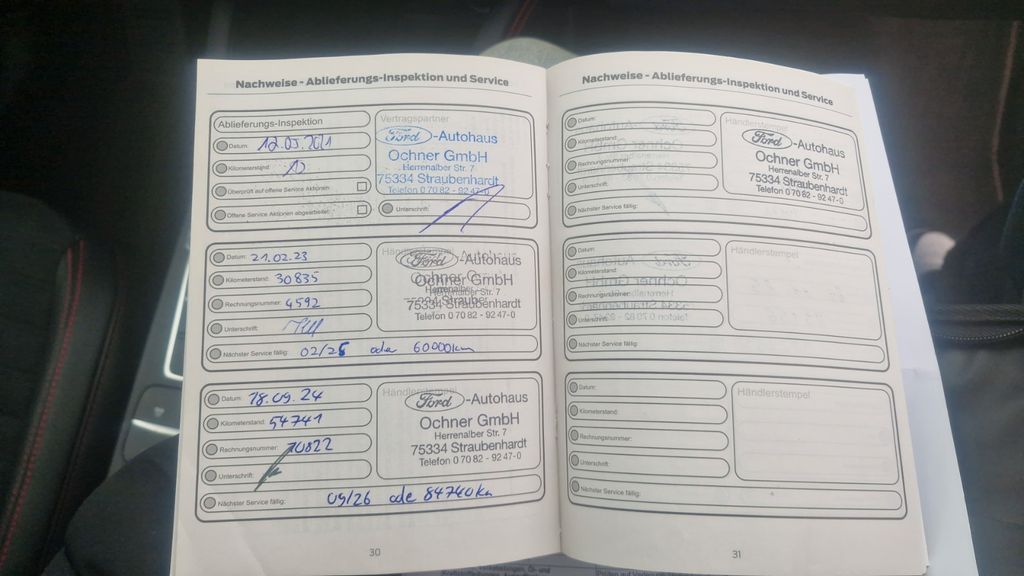 Nachweise - Ablieferungs-Inspektion und Service
Ablieferungs-Inspektion
Datum:
Kilometerstand:
Überprüft auf offene Service Aktionen
Offene Service Aktionen abgearbeitet:
Vertragspartner
Ford-Autohaus
Ochner GmbH
Herrenalber Str. 7
75334 Straubenhardt
Telefon 0 70 82 - 92 47-0
Unterschrift:
Datum: 21.02.23
Kilometerstand: 30835
Rechnungsnummer: 4592
Unterschrift:
Händlerstempel
Ford-Autohaus
Ochner GmbH
Herrenalber Str. 7
75334 Straubenhardt
Telefon 0 70 82 - 92 47-0
Nächster Service fällig: 02/25 oder 60000km
Datum: 18.09.24
Kilometerstand: 54741
Rechnungsnummer: 70822
Unterschrift:
Händlerstempel
Ford-Autohaus
Ochner GmbH
Herrenalber Str. 7
75334 Straubenhardt
Telefon 0 70 82 - 92 47-0
Nächster Service fällig: 09/26 ode 84740km
30
Nachweise - Ablieferungs-Inspektion und Service
Datum:
Kilometerstand:
Rechnungsnummer:
Unterschrift:
Händlerstempel
Ford-Autohaus
Ochner GmbH
Herrenalber Str. 7
75334 Straubenhardt
Telefon 0 70 82 - 92 47-0
Nächster Service fällig:
Datum:
Kilometerstand:
Rechnungsnummer:
Unterschrift:
Händlerstempel
Nächster Service fällig:
Datum:
Kilometerstand:
Rechnungsnummer:
Unterschrift:
Händlerstempel
Nächster Service fällig:
31